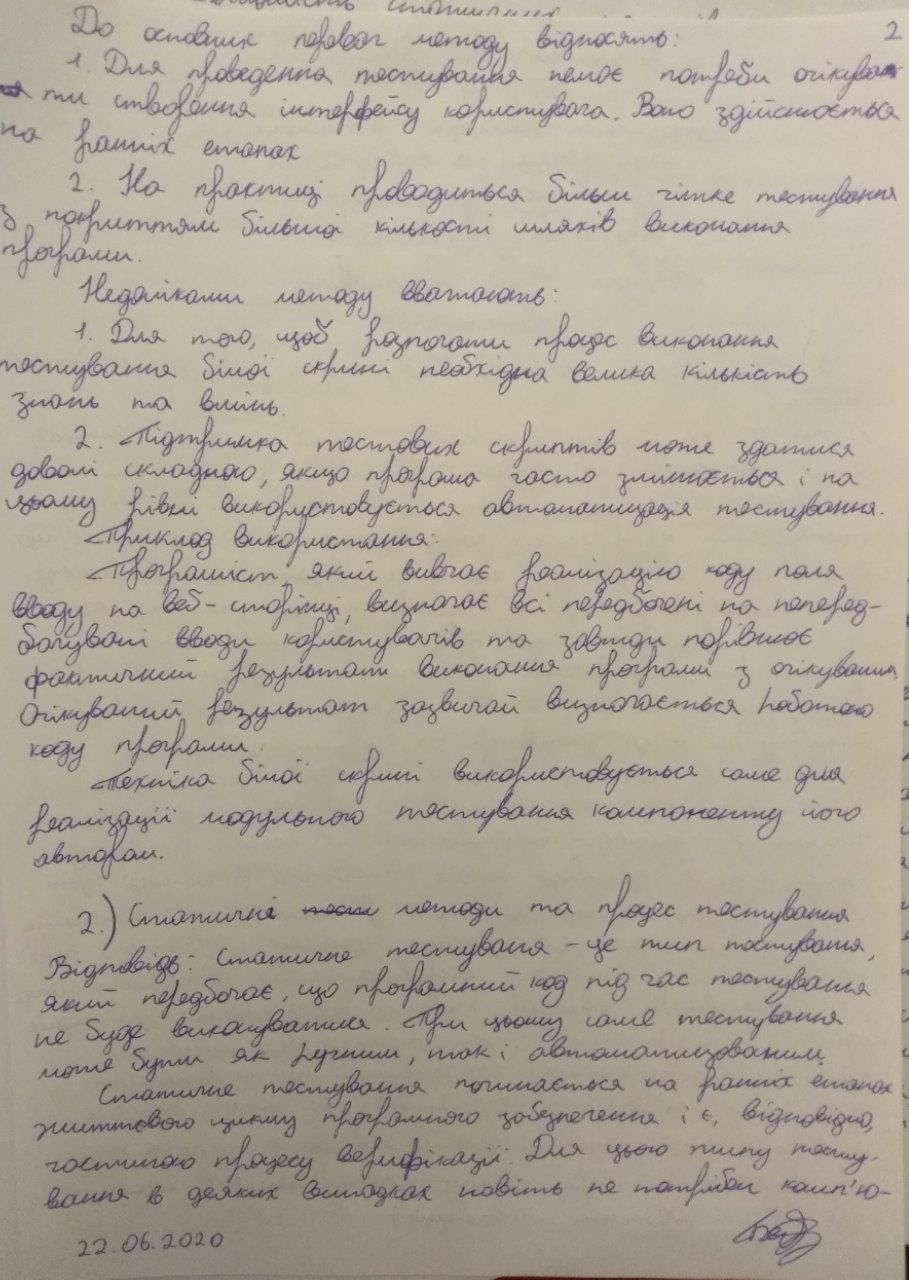 2
До основних переваг методу відносять:
1. Для проведення тестування немає потреби очікува-
ти створення інтерфейсу користувача. Воно здійснюється
на ранніх етапах
2. На практиці проводиться більш чітке тестування
з покриттям більшої кількості шляхів виконання
програми.
Недоліками методу вважають:
1. Для того, щоб розпочати процес виконання
тестування білої скрині необхідна велика кількість
знань та вмінь.
2. Підтримка тестових скриптів може здатися
доволі складною, якщо програма часто змінюється і на
цьому рівні використовується автоматизація тестування.
Приклад використання:
Програміст, який вивчає реалізацію коду поля
вводу на веб-сторінці, визначає всі передбачені та неперед-
бачувані вводи користувачів та завжди порівнює
фактичний результат виконання програми з очікуваним.
Очікуваний результат зазвичай визначається роботою
коду програми.
Техніка білої скрині використовується саме для
реалізації модульного тестування компоненту його
автором.
2.) Статичні методи та процес тестування
Відповідь: Статичне тестування - це тип тестування,
який передбачає, що програмний код під час тестування
не буде виконуватися. При цьому саме тестування
може бути як ручним, так і автоматизованим.
Статичне тестування починається на ранніх етапах
життєвого циклу програмного забезпечення і є, відповідно,
частиною процесу верифікації. Для цього типу тесту-
вання в деяких випадках навіть не потрібен комп'ю-
22.06.2020